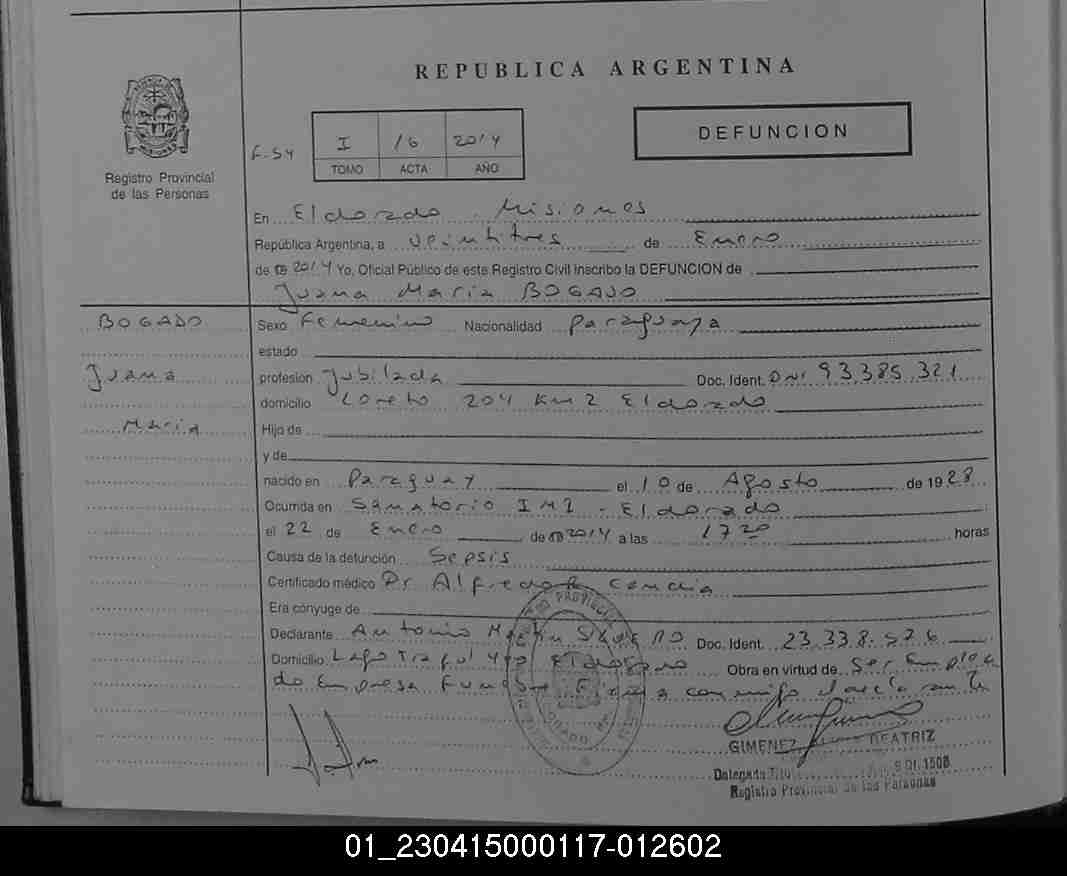 REPUBLICA ARGENTINA
Registro Provincial
de las Personas
F-54
I 16 2014
TOMO ACTA AÑO
DEFUNCION
En Eldorado Misiones
República Argentina, a veintitres de Enero
de 2014 Yo, Oficial Público de este Registro Civil inscribo la DEFUNCION de
Juana Maria BOGADO
BOGADO
Juana
Maria
Sexo Femenino Nacionalidad paraguaya
estado
profesión Jubilada Doc. Ident. DNI 93.385.321
domicilio Loreto 204 Km 2 Eldorado
Hijo de
y de
nacido en Paraguay el 10 de Agosto de 1928
Ocurrida en Sanatorio IM2 - Eldorado
el 22 de Enero de 2014 a las 1720 horas
Causa de la defunción Sepsis
Certificado médico Dr Alfredo R Cencia
Era cónyuge de
Declarante Antonio Doc. Ident. 23.338.576
Domicilio Lago Eldorado Obra en virtud de Ser Emplea
do Empresa conmigo
GIMENEZ BEATRIZ
Delegada
Registro Provincial de las Personas
01_230415000117-012602